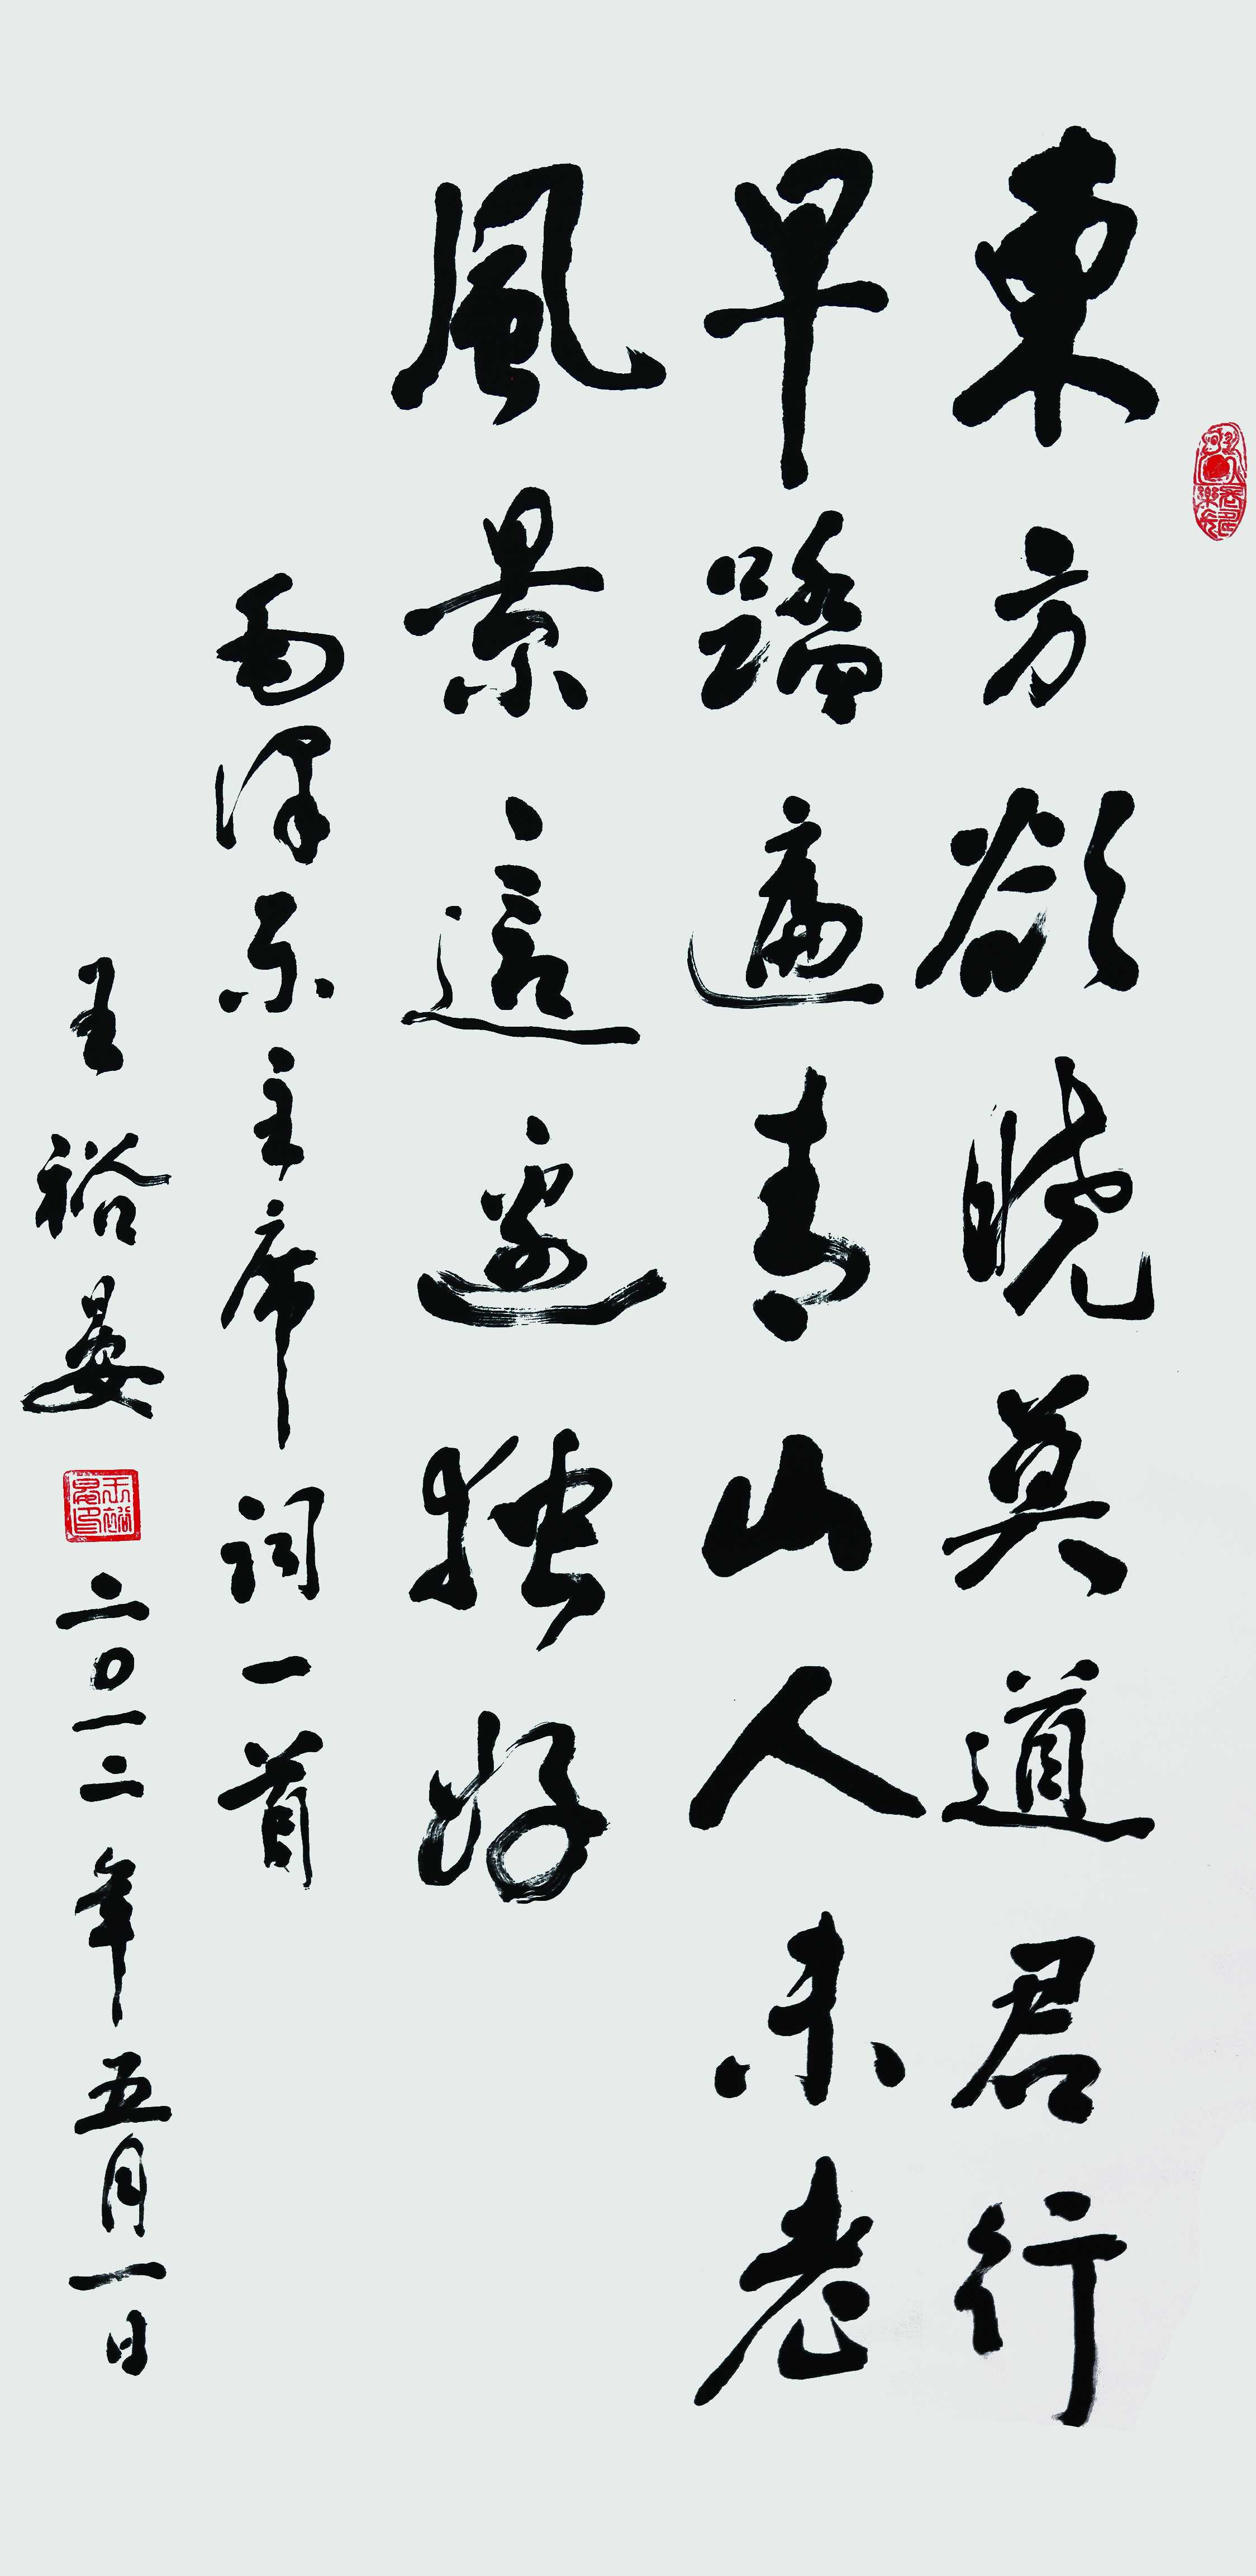 東方欲曉莫道君行
早踏遍青山人未老
風景這邊独好
毛泽东主席詞一首
王裕晏
二〇一二年五月一日